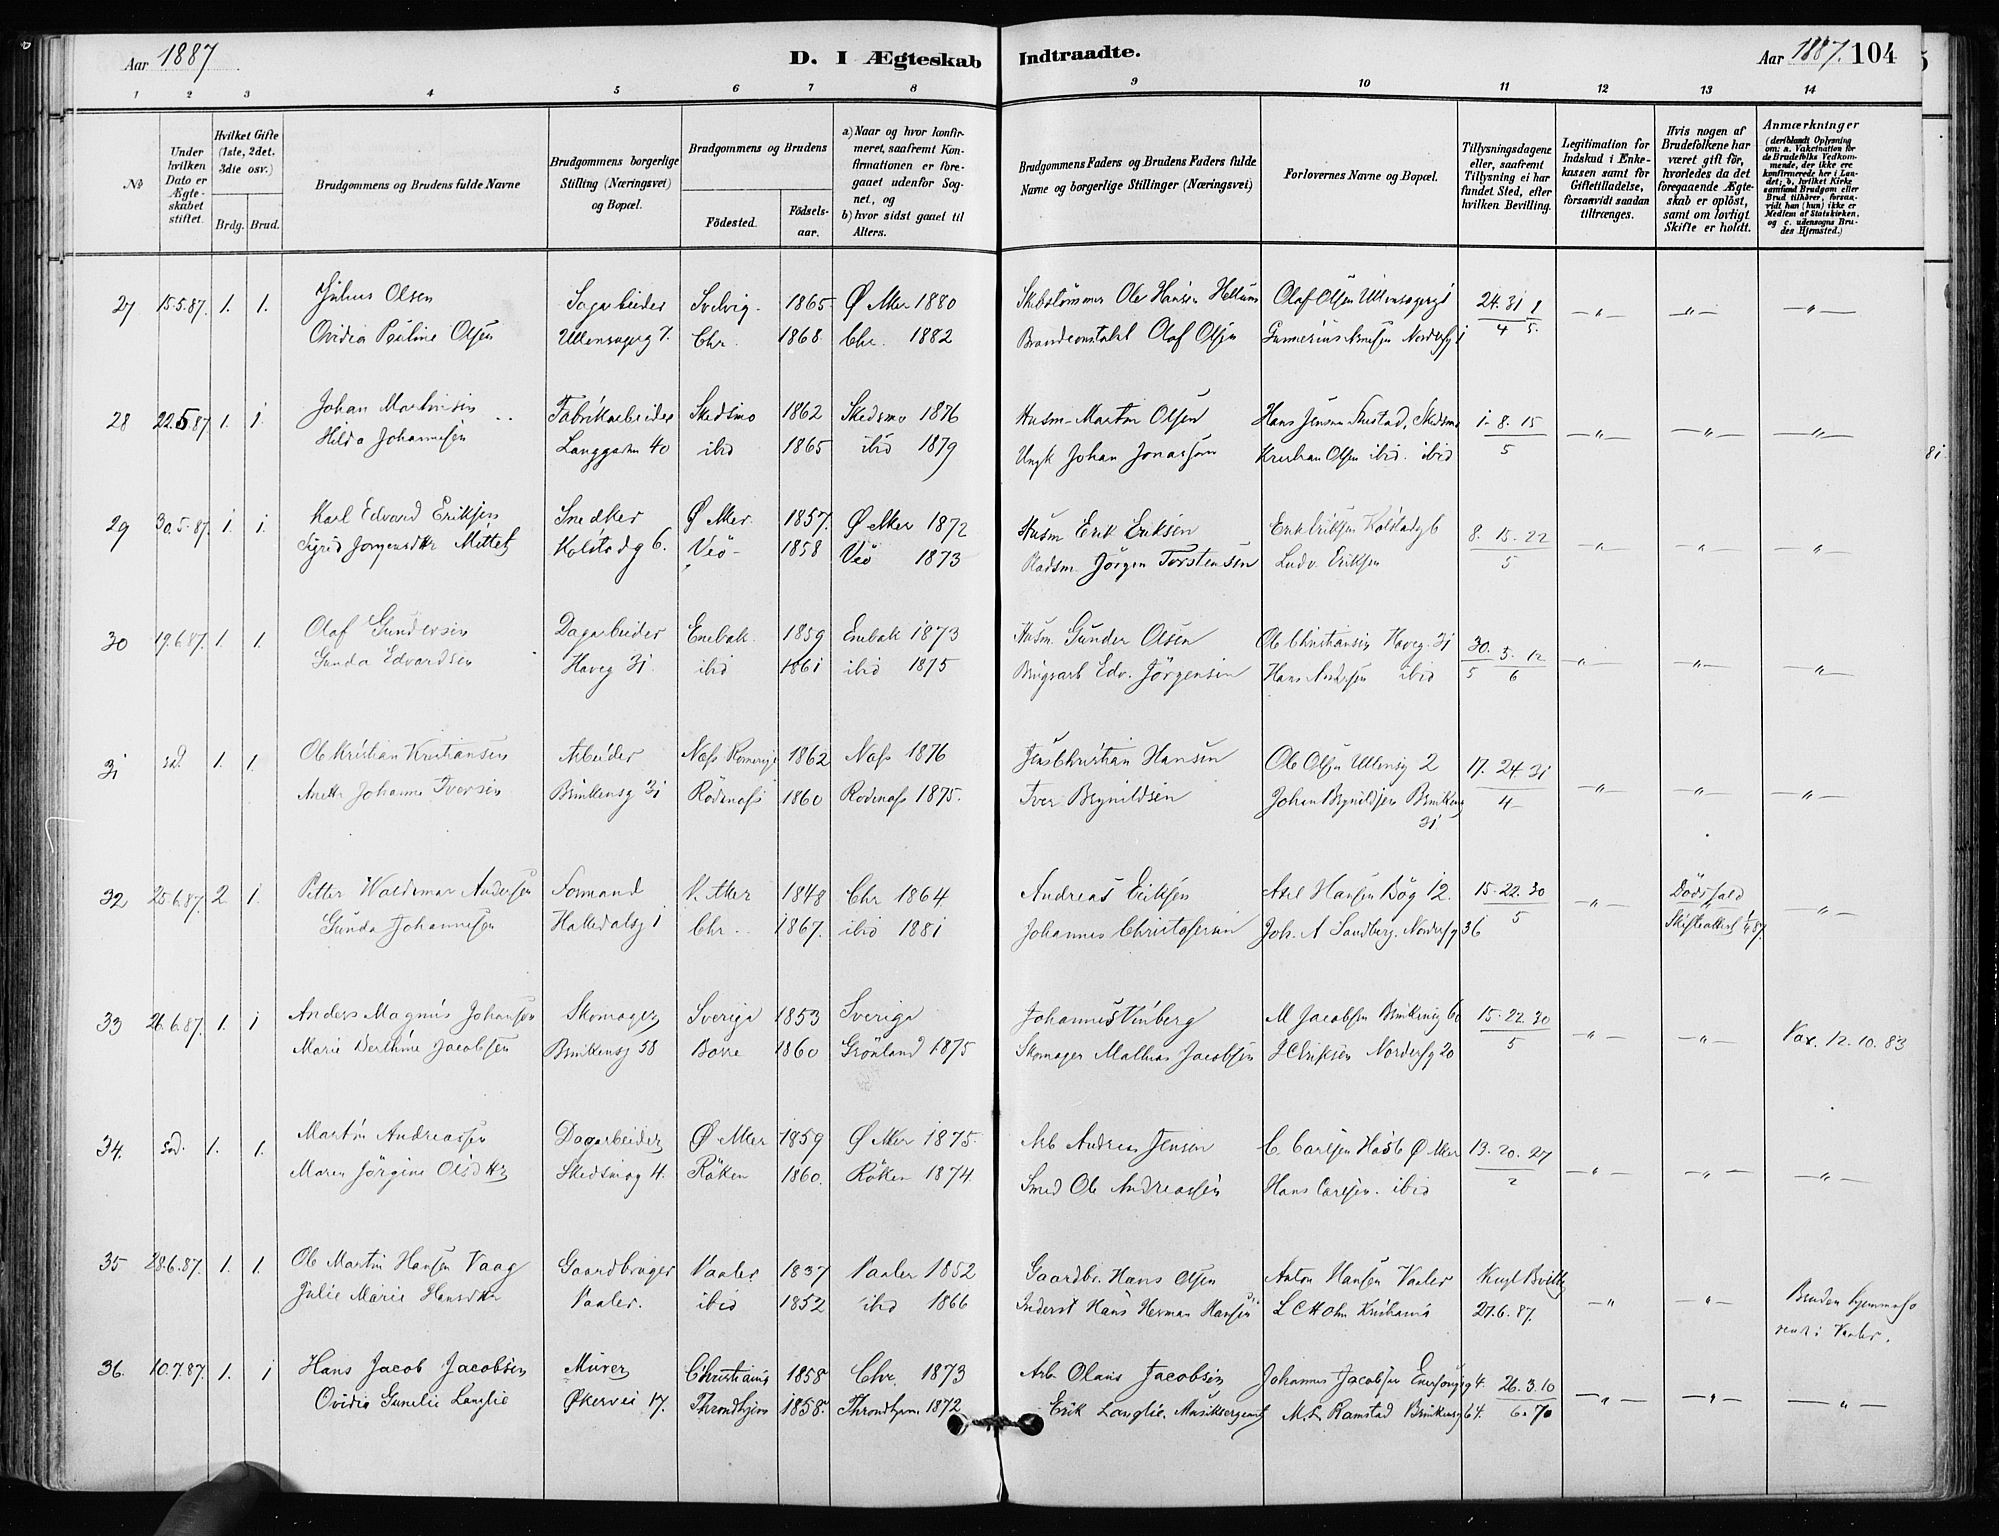 Aar 1887
D. I Ægteskab Indtraadte.
Aar 1887. 104
1 2 3 4 5 6 7 8 9 10 11 12 13 14
No
Under hvilken Dato er Ægteskabet stiftet.
Hvilket Gifte (1ste, 2det, 3die osv.)
Brdg. Brud.
Brudgommens og Brudens fulde Navne
Brudgommens borgerlige Stilling (Næringsvei) og Bopæl.
Brudgommens og Brudens
Fødested. Fødselsaar.
a) Naar og hvor konfirmeret, saafremt Konfirmationen er foregaaet udenfor Sognet, og
b) hvor sidst gaaet til Alters.
Brudgommens Faders og Brudens Faders fulde Navne og borgerlige Stillinger (Næringsvei)
Forlovernes Navne og Bopæl.
Tillysningsdagene eller, saafremt Tillysning ei har fundet Sted, efter hvilken Bevilling.
Legitimation for Indskud i Enkekassen samt for Giftetilladelse, forsaavidt saadan tiltrænges.
Hvis nogen af Brudefolkene har været gift før, hvorledes da det foregaaende Ægteskab er opløst, samt om lovligt Skifte er holdt.
Anmærkninger
(deriblandt Oplysning om: a. Vakcination for de Brudefolks Vedkommende, der ikke ere konfirmerede her i Landet; b. hvilket Kirkesamfund Brudgom eller Brud tilhører, forsaavidt han (hun) ikke er Medlem af Statskirken, og c. udensogns Brudes Hjemsted.)
27 15.5.87. 1. 1. Julius Olsen Sagarbeider Svelvig. 1865 Ø Aker 1880 Ole Hansen Olaf Olsen 24. 31 8 —„— —„— —„—
Ovidia Pauline Olsen Ullensagerg 7. Chr. 1868 Chr. 1882 Brandconstabel Olaf Olsen 4 5.
28 22.5.87 1. 1. Johan Martinsen Fabrikarbeider Skedsmo 1862 Skedsmo 1876 Husm. Martin Olsen Hans Jensen Skedsmo 1. 8. 15 —„— —„— —„—
Hilda Johannesen Langgaden 40 ibid 1865 ibid 1879 Ungk Johan Jonassen Kristian Olsen ibid. ibid 5
29 30.5.87. 1. 1. Karl Edvard Eriksen Snedker Ø Aker. 1857. Ø Aker 1872 Husm Erik Eriksen Erik Eriksen Kolstadg 6 8. 15. 22 —„— —„— —„—
Sigrid Jørgensdtr Mittet Kolstadg 6. Veø 1858 Veø 1873 Jørgen Torstensen Ludv. Eriksen 5
30 19.6.87. 1. 1. Olaf Gundersen Dagarbeider Enebak. 1859 Enebak 1873 Husm. Gunder Olsen Ole Christiansen Haveg. 31 30. 5. 12 —„— —„— —„—
Gunda Edvardsen Haveg 31. ibid 1861 ibid 1875 Brugsarb Edv. Jørgensen Hans Andersen ibid 5 6
31 sad. 1. 1. Ole Kristian Kristiansen Arbeider Næs Romerige 1862 Næs 1876 Jens Christian Hansen Ole Olsen Ullensg 2 17. 24 31 —„— —„— —„—
Anette Johanne Iversen Brinkensg 31 Rødenæs 1860 Rødenæs 1875. Iver Brynildsen Johan Brynildsen Brinkensg 31 4
32 25.6.87. 2. 1. Petter Waldemar Andersen Formand V. Aker 1848 Chr 1864 Andreas Eriksen Axel Hansen Bøg 12. 15. 22. 30 —„— Dødsfald —„—
Gunda Johannesen Halledalsg 1 Chr. 1867. ibid 1881 Johannes Christofersen Joh. A Sandberg. Norderfg 36 5 Skifteattest 1/4 87.
33 26.6.87. 1. 1 Anders Magnus Johansen Skomager Sverige 1853 Sverige Johannes Vinberg M Jacobsen Brinkensg 60 15. 22. 30 —„— —„— Vax. 12. 10. 83
Marie Berthine Jacobsen Brinkensg 58 Borre 1860 Grønland 1875 Skomager Mathias Jacobsen Norderfg 20 5
34. sad. 1. 1. Martin Andreassen Dagarbeider Ø Aker 1859 Ø Aker 1875. Arb Andreas Jensen C. Carlsen Ø Aker 13. 20. 27 —„— —„— —„—
Maren Jørgine Olsdtr Skedsmog 4. Røken 1860. Røken 1874 Smed Ole Andreassen Hans Carlsen. ibid 2
35 28.6.87. 1. 1. Ole Martin Hansen Vaag Gaardbruger Vaaler 1837 Vaaler 1852 Gaardbr. Hans Olsen Anton Hansen Vaaler Kngl Bvillg —„— —„— Bruden hjemmehørende i Vaaler.
Julie Marie Hansdtr Vaaler. ibid 1852 ibid 1866 Inderst Hans Herman Hansen L C Holm Kristiania 27.6.87.
36. 10.7.87. 1. 1 Hans Jacob Jacobsen Murer Christiania 1858 Chr. 1873 Arb. Olaus Jacobsen Johannes Jacobsen 4. 26. 3. 10 —„— —„— —„—
Ovidia Gunelie Langlie Økervei 17. Throndhjem 1858. Throndhjem. 1872 Erik Langlie. Musiksergeant M. L. Ramstad Brinkensg 64. 6. 70
81